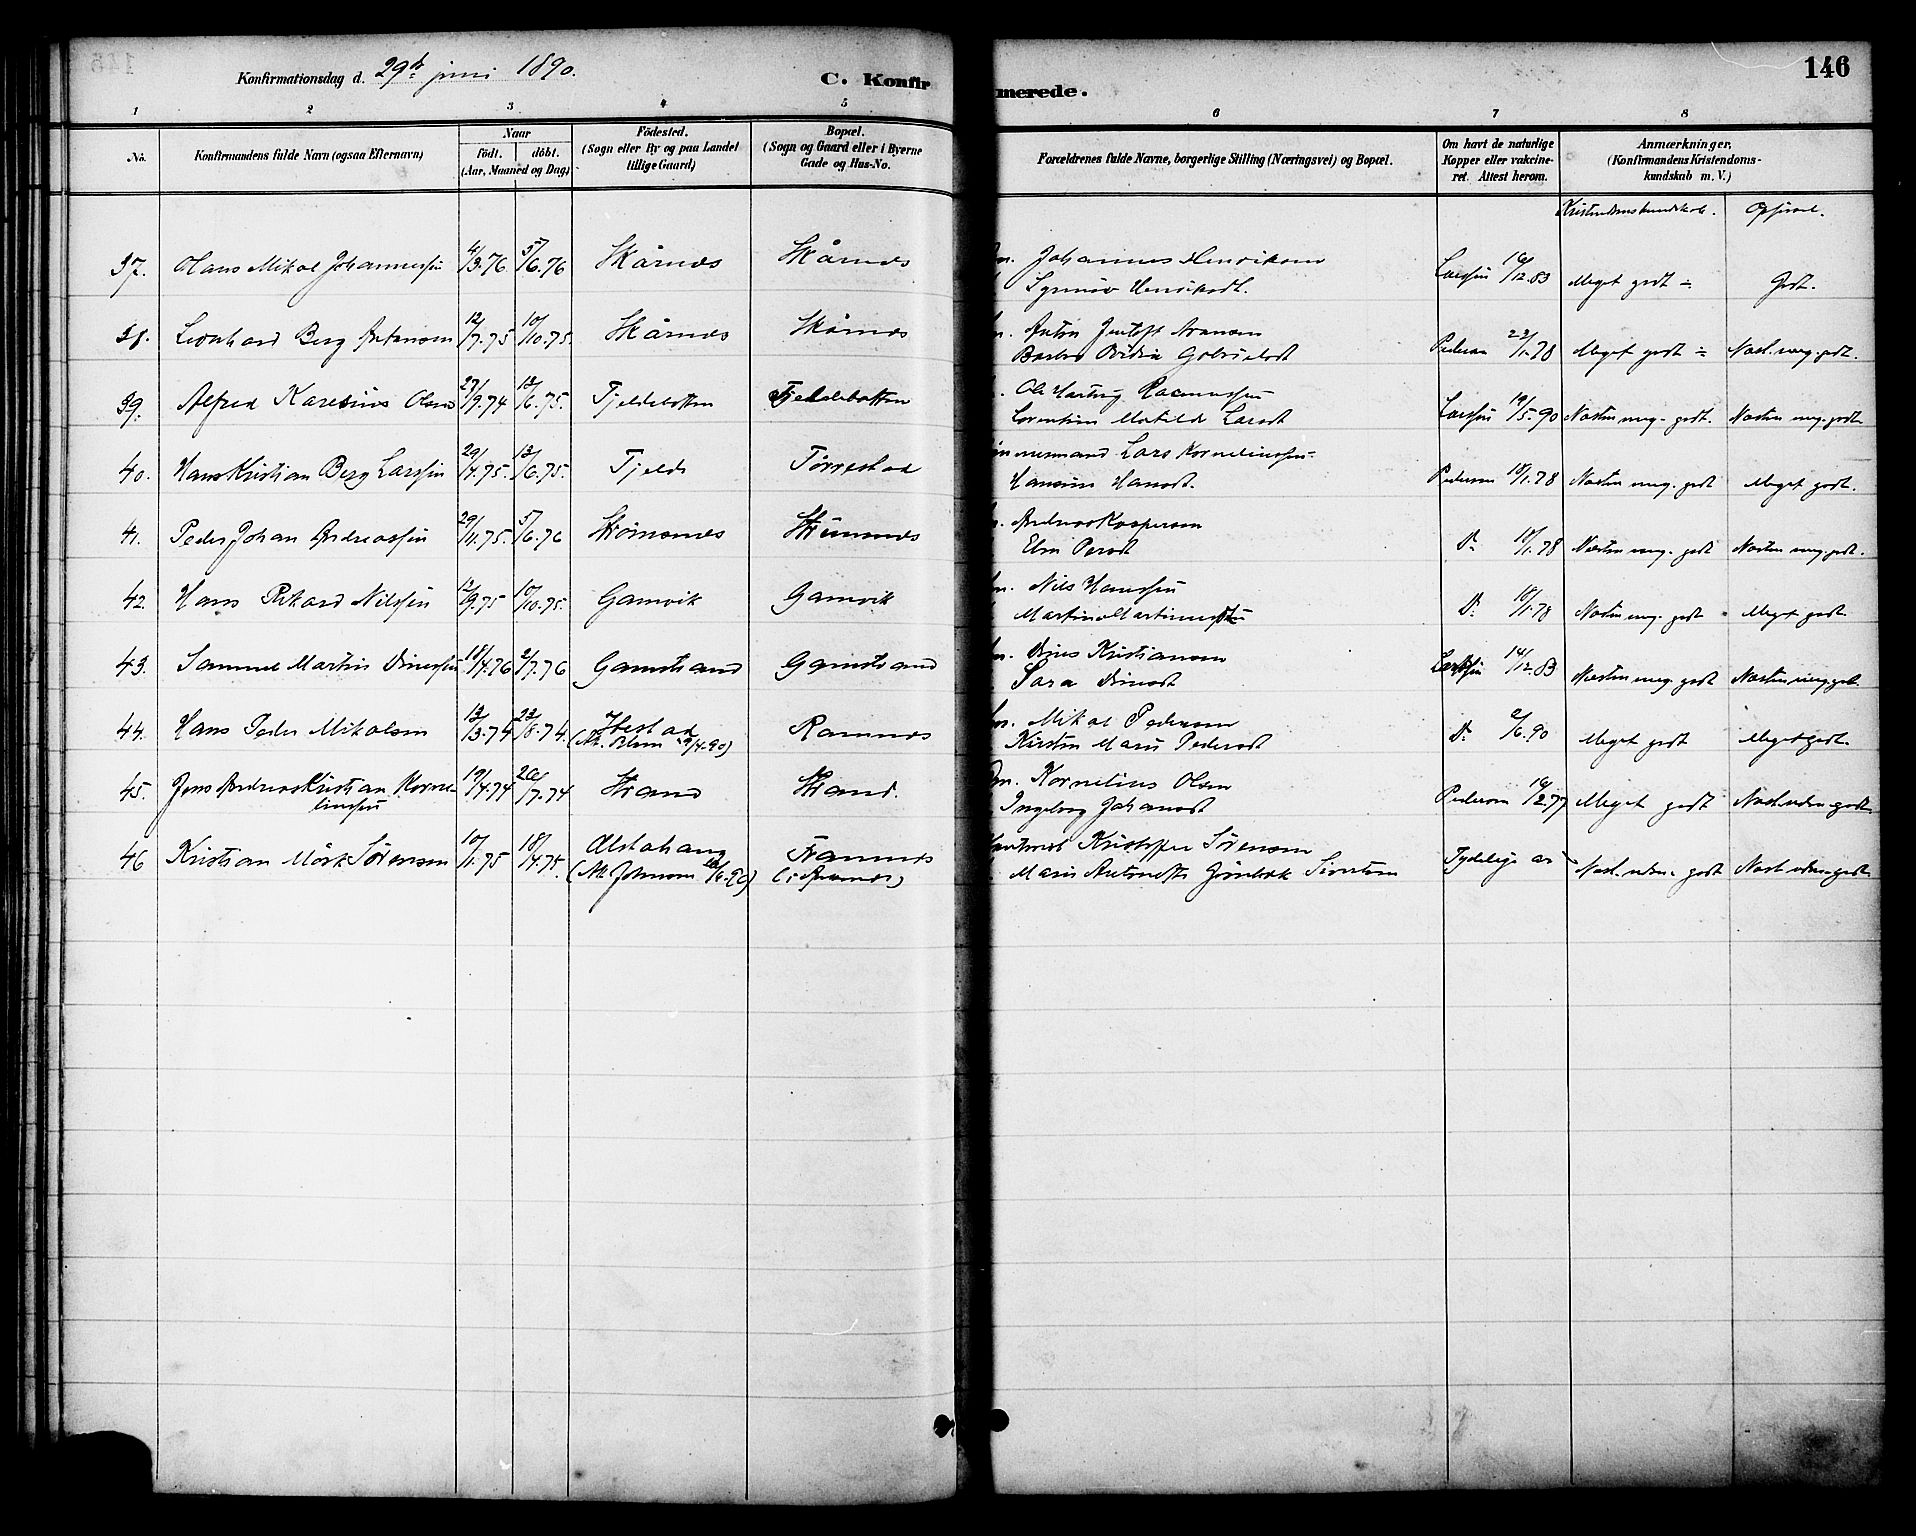 Konfirmationsdag d. 29de juni 1890.
C. Konfirmerede.
146
1 2 3 4 5 6 7 8
No.
Konfirmandens fulde Navn (ogsaa Efternavn)
Naar
födt. döbt.
(Aar, Maaned og Dag)
Födested.
(Sogn eller By og paa Landet
tillige Gaard)
Bopæl.
(Sogn og Gaard eller i Byerne
Gade og Hus-No.
Forældrenes fulde Navne, borgerlige Stilling (Næringsvei) og Bopæl.
Om havt de naturlige
Kopper eller vakcine-
ret. Attest herom.
Anmærkninger,
(Konfirmandens Kristendoms-
kundskab m. V.)
Kristendomskundskab. Opførsel.
37. Hans Mikal Johannessen 4/3.76 5/6.76 Skårnes Skårnes Johannes Henriksen Larssen 16/12.83
Synnøv Henriksdt. Meget godt Godt.
38. Leonhard Berg Antonsen 12/7.75 10/10.75. Skårnes Skårnes Anton Jentoft Aronsen
Gabrielsdt Pedersen 22/1.78 Meget godt Næst. meg. godt.
39. Alfred Karesius Olsen 27/9.74 13/6.75. Fjeldebotten Fjeldebotten Ole Hartvig Rasmussen
Lorentine Matilde Larsdt Larssen 19/5.90 Næsten meg. godt. Næsten meg. godt
40. Hans Kristian Berg Larssen 29/4.75. 13/6.75. Fjelde Tørrestad Lars Kornelinssen
Hansine Hansdt. Pedersen 18/1.78 Næsten meg. godt Meget godt.
41. Peder Johan Andreassen 29/11.75. 5/6.76 Strømsnes Strømsnes Andreas Kaspersen
Elen Persdt Do 18/1.78 Næsten meg. godt Næsten meg. godt.
42. Hans Rikard Nilssen 10/10.75. Gamvik Gamvik Nils Hanssen
Martine Do 18/1.78 Næsten meg. godt Meget godt.
43. Samuel Martin Dinessen 18/4.76 2/7.76 Gamstrand Gamstrand Dines Kristiansen
Sara Larssen 14/12.83 Næsten meg. godt Næsten meg. godt
44. Hans Peder Mikalsen 13/3.74 23/8.74. Ramnes Mikal Pedersen
(Att. Olsen 29/4.90) Kirsten Marie Pedersdt Do 2/6.90 Meget godt Meget godt.
45. Jens Andreas Kristian Korne- 19/4.74 26/7.74 Strand Strand. Kornelius Olsen
linssen Ingeborg Johansdt Pedersen 16/2.77 Meget godt Næst. uden. godt
46 Kristian Mörk Sørensen 10/1.75 18/4.75. Alstahaug Kristoffer Sørensen
(Att. Johnsen 12/6.90) Marie Antonette Tydelige ar Næst. uden. godt Næst. uden. godt.